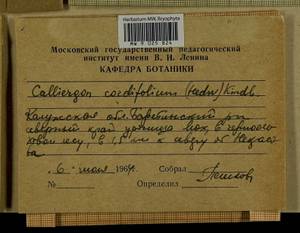 Herbarium MW, Bryophyta
MW 9 025 824
Московский государственный педагогический
институт имени В. И. Ленина
КАФЕДРА БОТАНИКИ
Calliergon cordifolium (Hedw) Kindb.
Калужская обл. Барятинский р-н
северный край
лесу, в 1,5 км к северу от
6 1964. Собрал
№ Определил